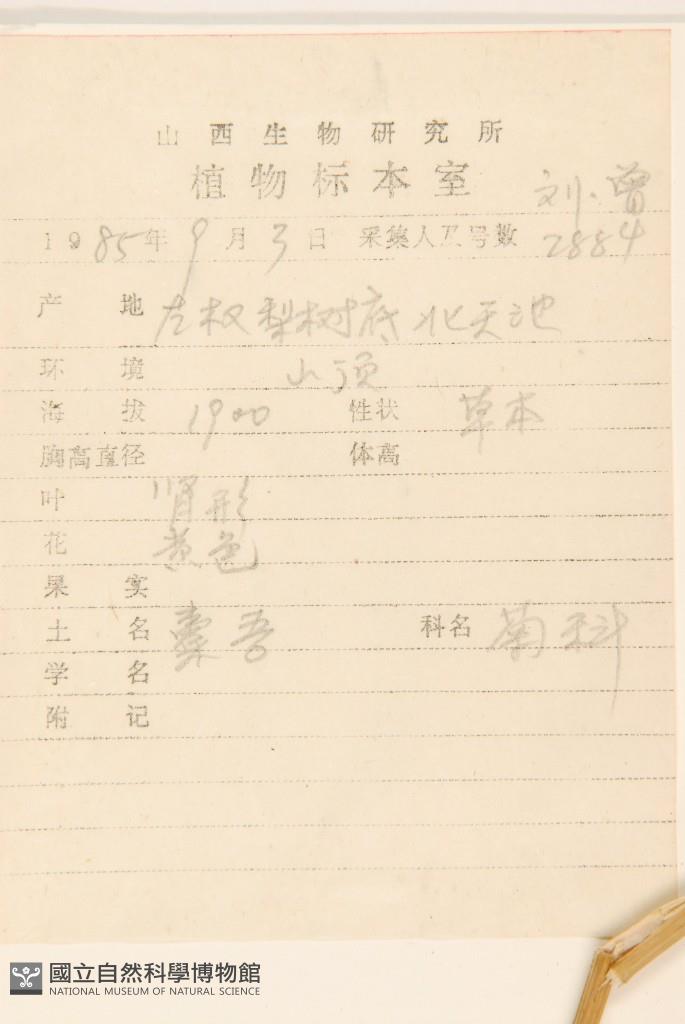 山西生物研究所
植物标本室
刘.曾
1985年9月3日 采集人及号数 2884
产地 左权梨树底北天池
环境 山顶
海拔 1900 性状 草本
胸高直径 体高
叶 肾形
花 黄色
果实
土名 橐吾 科名 菊科
学名
附记
國立自然科學博物館
NATIONAL MUSEUM OF NATURAL SCIENCE